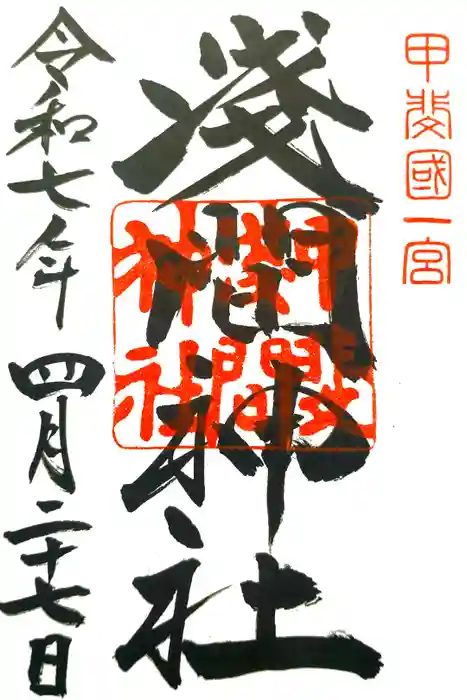 甲斐國一宮
淺間神社
淺間神社
令和七年
四月二十七日